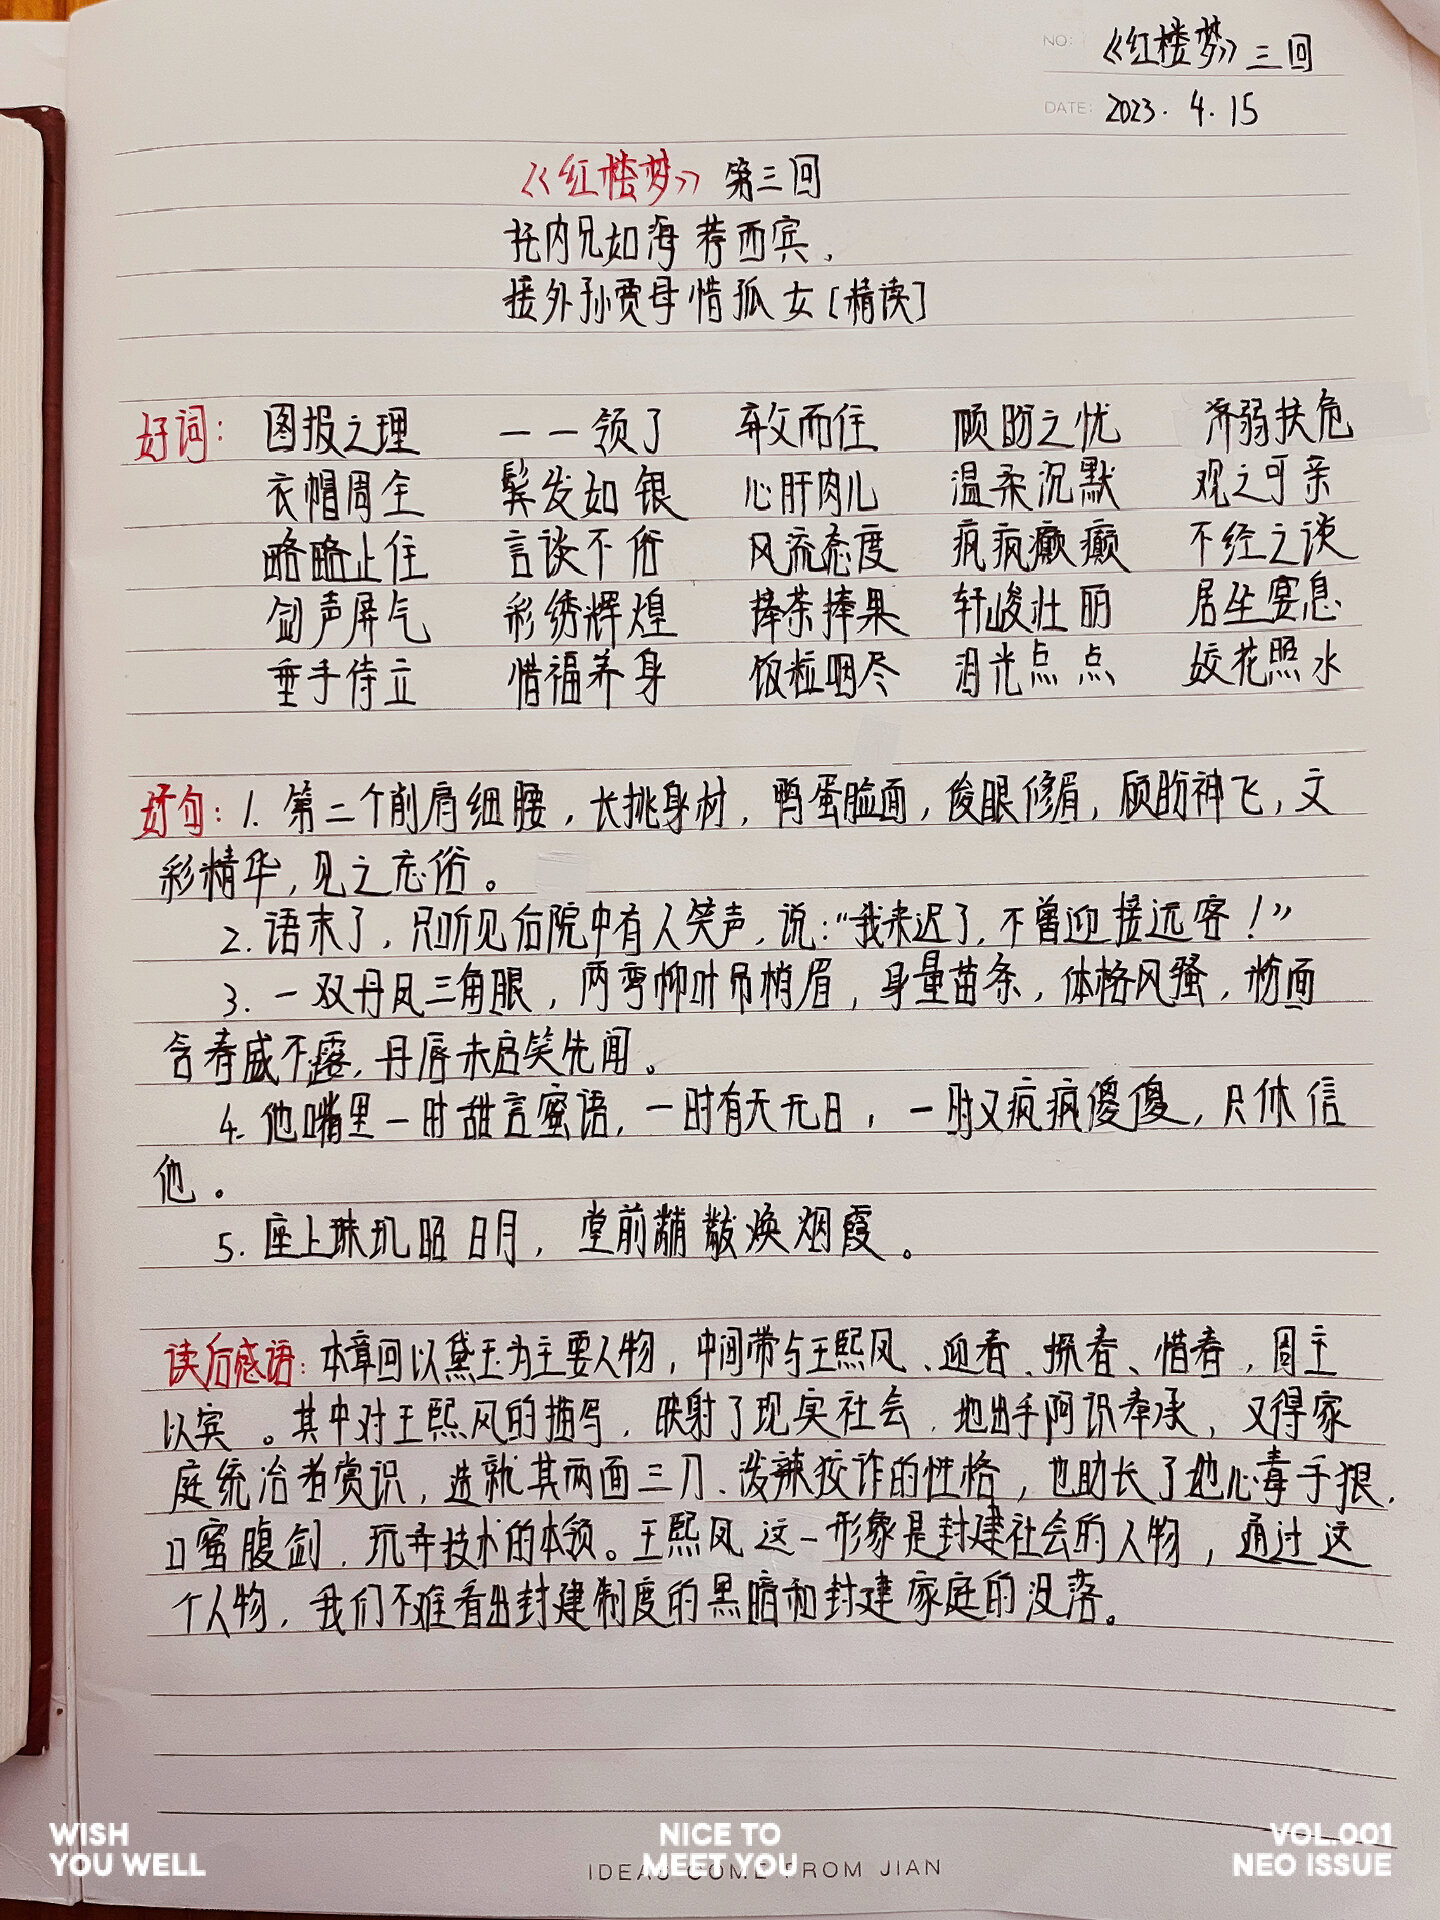 NO: 《红楼梦》三回
DATE: 2023. 4. 15
《红楼梦》 第三回
托内兄如海荐西宾，
接外孙贾母惜孤女［精读］
好词： 图报之理 一一领了 弃父而住 顾盼之忧 济弱扶危
衣帽周全 鬓发如银 心肝肉儿 温柔沉默 观之可亲
略略止住 言谈不俗 风流态度 疯疯癫癫 不经之谈
敛声屏气 彩绣辉煌 捧茶捧果 轩峻壮丽 居坐宴息
垂手侍立 惜福养身 饭粒咽尽 泪光点点 姣花照水
好句：1. 第二个削肩细腰，长挑身材，鸭蛋脸面，俊眼修眉，顾盼神飞，文
彩精华，见之忘俗。
2. 语末了，只听见后院中有人笑声，说：“我来迟了，不曾迎接远客！”
3. 一双丹凤三角眼，两弯柳叶吊梢眉，身量苗条，体格风骚，粉面
含春威不露，丹唇未启笑先闻。
4. 他嘴里一时甜言蜜语，一时有天无日，一时又疯疯傻傻，只休信
他。
5. 座上珠玑昭日月，堂前黼黻焕烟霞。
读后感语：本章回以黛玉为主要人物，中间带与王熙凤、迎春、探春、惜春，周主
以宾。其中对王熙凤的描写，映射了现实社会，她出手阿谀奉承，又得家
庭统治者赏识，造就其两面三刀、泼辣狡诈的性格，也助长了她心毒手狠，
口蜜腹剑，玩弄技术的本领。王熙凤这一形象是封建社会的人物，通过这
个人物，我们不难看出封建制度的黑暗和封建家庭的没落。
WISH
YOU WELL
NICE TO
MEET YOU
VOL.001
NEO ISSUE
IDEAS COME FROM JIAN